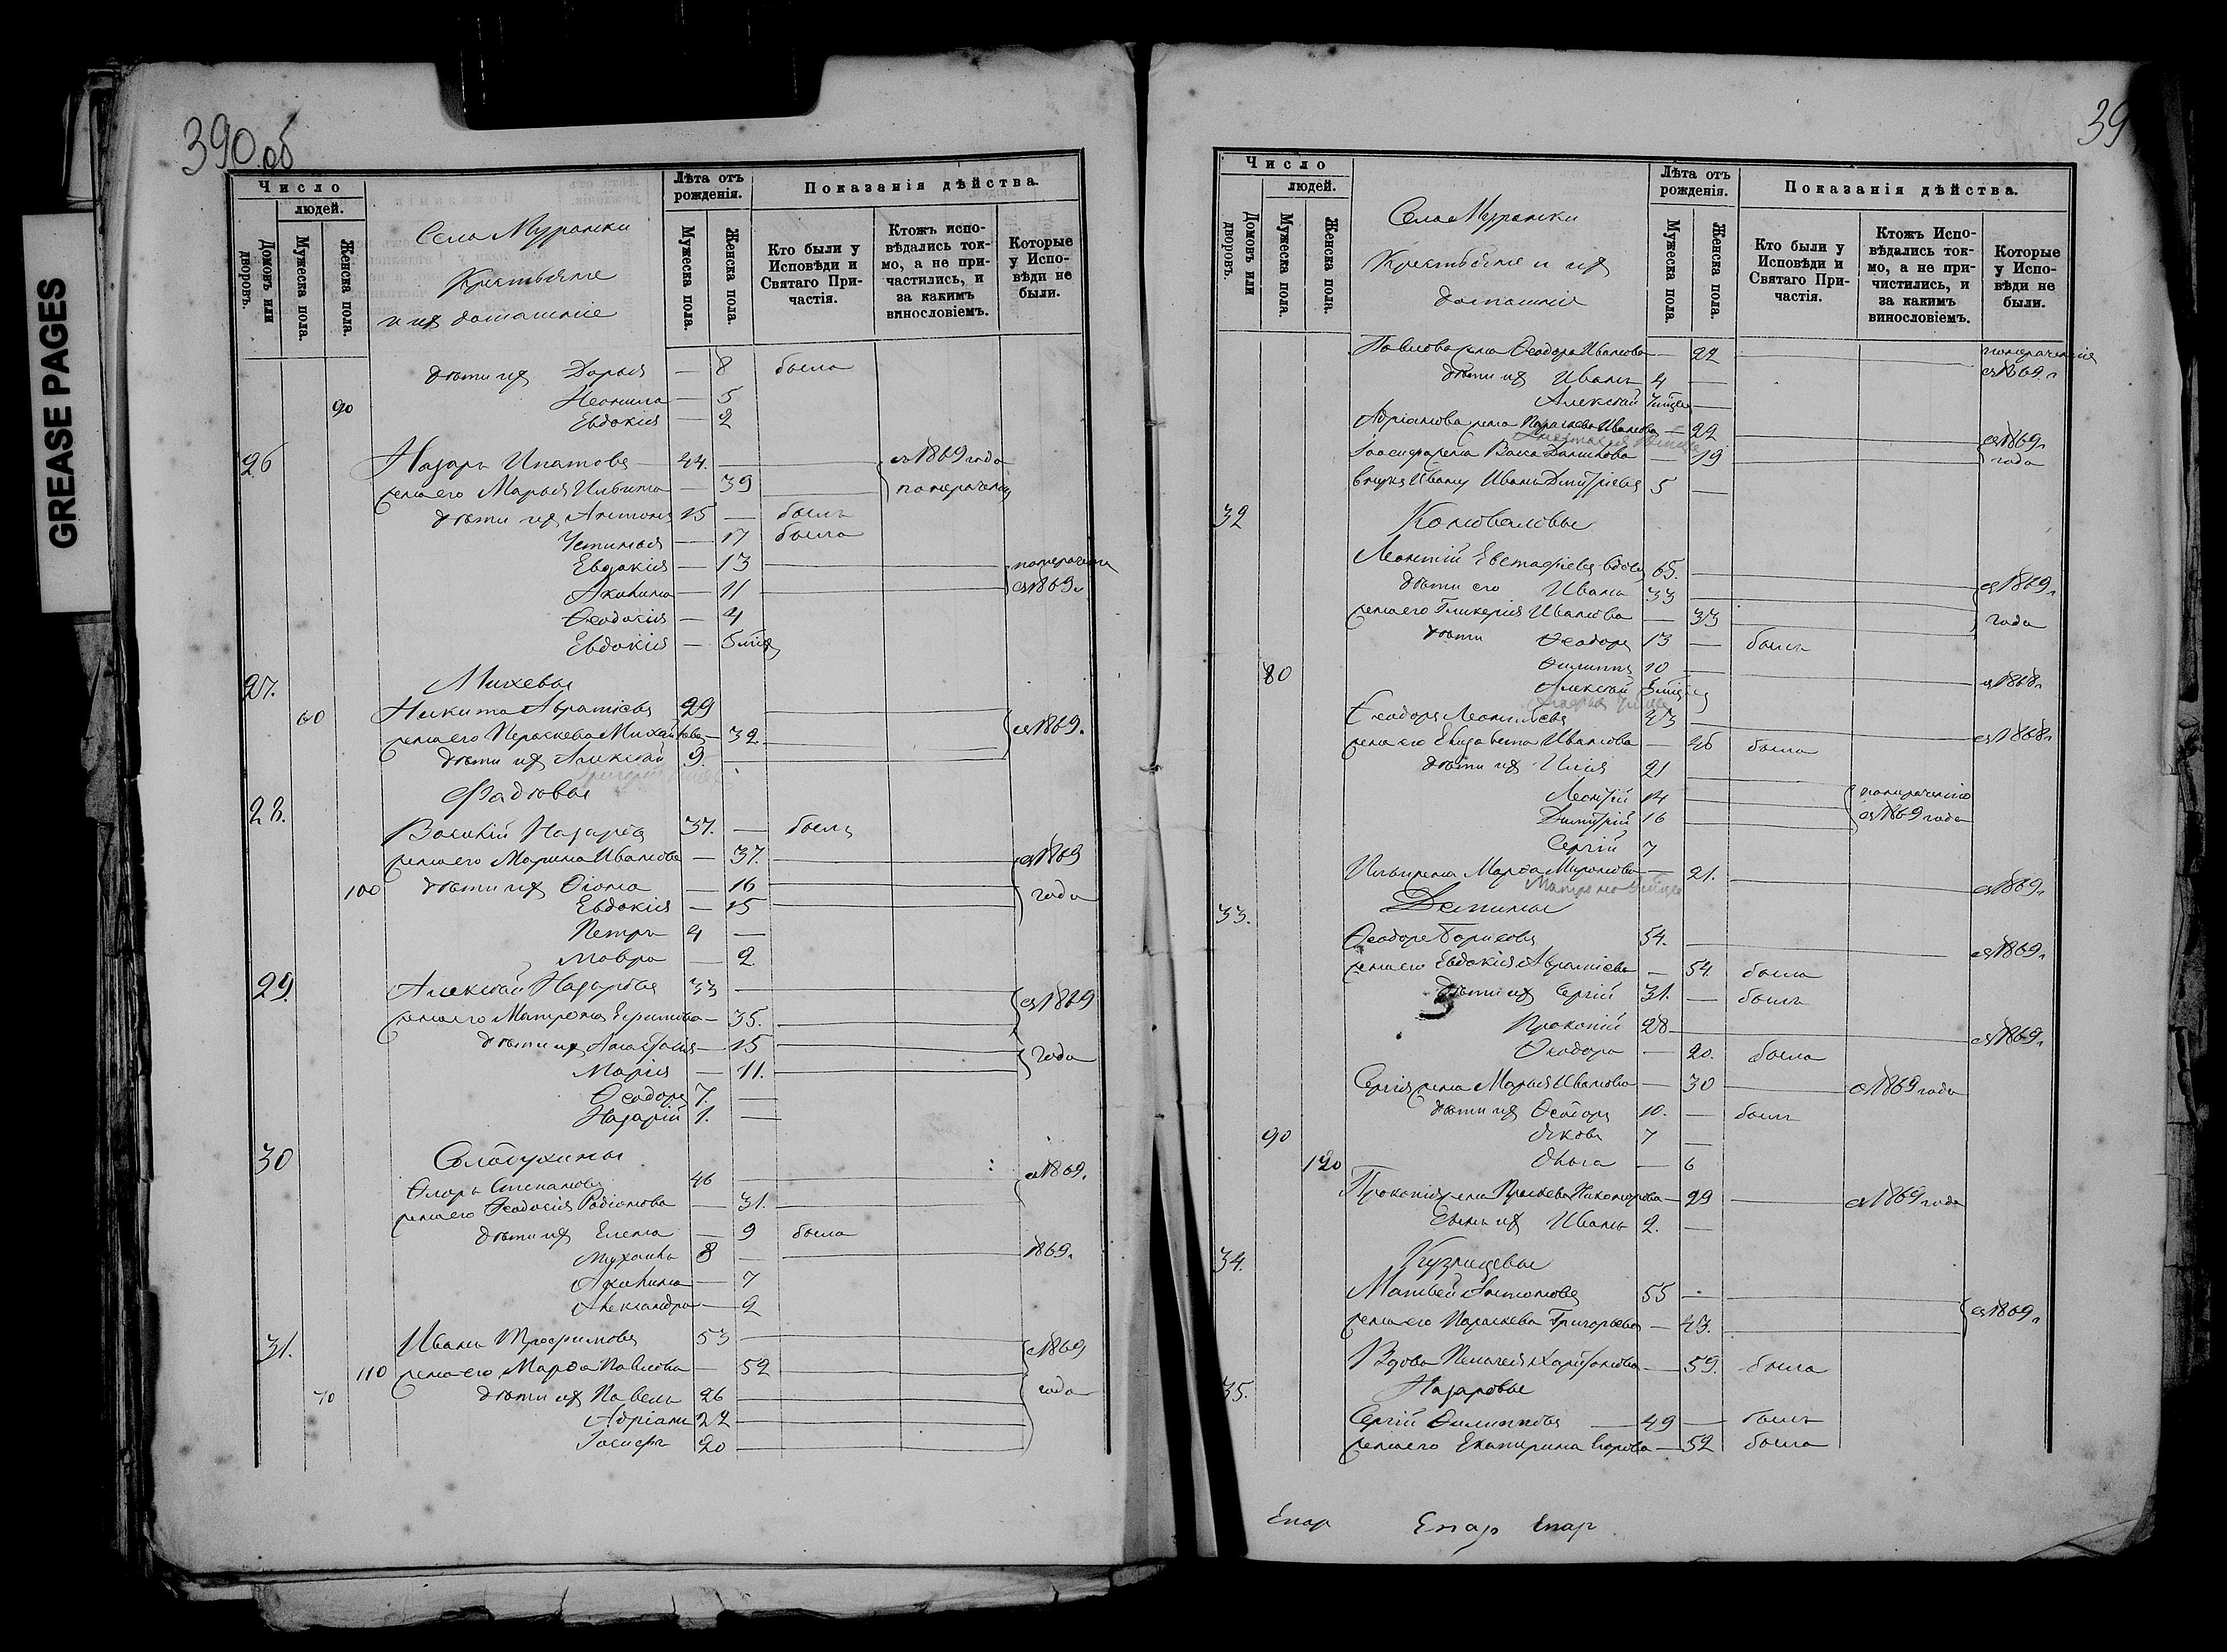 GREASE PAGES
390 об
Число
людей.
Домовъ или дворовъ.
Мужеска пола.
Женска пола.
Село Муранки
Крестьяне
и их домашніе
Лѣта отъ рожденія.
Мужеска пола.
Женска пола.
Показанія дѣйства.
Кто были у Исповѣди и Святаго Причастія.
Ктожъ исповѣдались токмо, а не причастились, и за какимъ винословіемъ.
Которые у Исповѣди не были.
дѣти их Дарья — 8 была
90 Неонила — 5
Евдокия — 2
26 Назаръ Ипатовъ 44. съ 1869 года
жена его Марья Ильина — 39
дѣти их Антоній 15 — былъ
Устинья — 17 была
Евдокія — 13
Акилина — 11 съ 1869 г.
Ѳеодосія — 4
Евдокія — 5 мѣс
27. Михевы
60 Никита Авраміевъ 29
жена его Параскева Михайлова — 32 съ 1869.
дѣти их Алексѣй 9.
28. Фадѣовы
Василій Назарьев 37. — былъ
жена его Марина Иванова — 37. съ 1869
100 дѣти их Ѳіона — 16 года
Евдокія — 15
Петръ 4 —
Мавра — 2
29. Алексѣй Назарьевъ 33 съ 1869
жена его Матрона Ефимова — 35.
дѣти их Анастасія — 15 года
Марія — 11.
Ѳеодоръ 7. —
Назарій 1. —
30 Солодухины
Степановъ 46 съ 1869.
жена его Ѳеодосія Родіонова — 31.
дѣти их Елена — 9 была
Михаилъ 8 — 1869.
Акилина — 7
Александра — 2
31. Иванъ Трофимовъ 53 с 1869
110 жена его Марѳа Павлова — 52
70 дѣти их Павелъ 26 года
Адріанъ 22
Іосифъ 20
39
Число
людей.
Домовъ или дворовъ.
Мужеска пола.
Женска пола.
Село Муранки
Крестьяне и их
домашніе
Лѣта отъ рожденія.
Мужеска пола.
Женска пола.
Показанія дѣйства.
Кто были у Исповѣди и Святаго Причастія.
Ктожъ Исповѣдались токмо, а не причистились, и за какимъ винословіемъ.
Которые у Исповѣди не были.
Павлова жена Ѳеодора Иванова — 22
дѣти их Иванъ 4 — съ 1869 г
Алексѣй
Адріанова жена Параскева Иванова — 22 съ 1869 г
Іосифа жена Васса Данилова — 19 года
внукъ Ивану Иванъ Дмитріевъ 5 —
32 Коноваловы
Леонтій Евстафіевъ вдовъ 65. съ 1869 г
дѣти его Иванъ 33
жена его Гликерія Иванова — 33 года
дѣти Ѳеодоръ 13 — былъ
80 Филиппъ 10
Алексѣй съ 1868 г
Ѳеодоръ Леонтьевъ 43 съ 1868 г
жена его Елизавета Иванова — 46 была
дѣти их Илія 21
Леонтій 14
Димитрій 16 съ 1869 года
Сергій 7
Ильи жена Марѳа Миронова — 21. съ 1869 г
33. Демины
Ѳеодоръ Борисовъ 54. съ 1869 г
жена его Евдокія Авраміева — 54 была
дѣти их Сергій 31. — былъ
Прокопій 28 съ 1869 г
Ѳеодора — 20. была
Сергія жена Марья Иванова — 30 с 1869 года
дѣти их Ѳеодоръ 10. — былъ
90 Яковъ 7 —
120 Ольга — 6
Прокопія жена Параскева Никанорова — 29 съ 1869 года
сынъ их Иванъ 2. —
34. Кузнецовы
Матвей Антоновъ 55 — съ 1869 г
жена его Параскева Григорьева — 43.
Вдова Пелагея Харитонова — 59. была
35. Назаровы
Сергій Филипповъ 49 — былъ
жена его Екатерина Егорова — 52 была
Епар Епар Епар